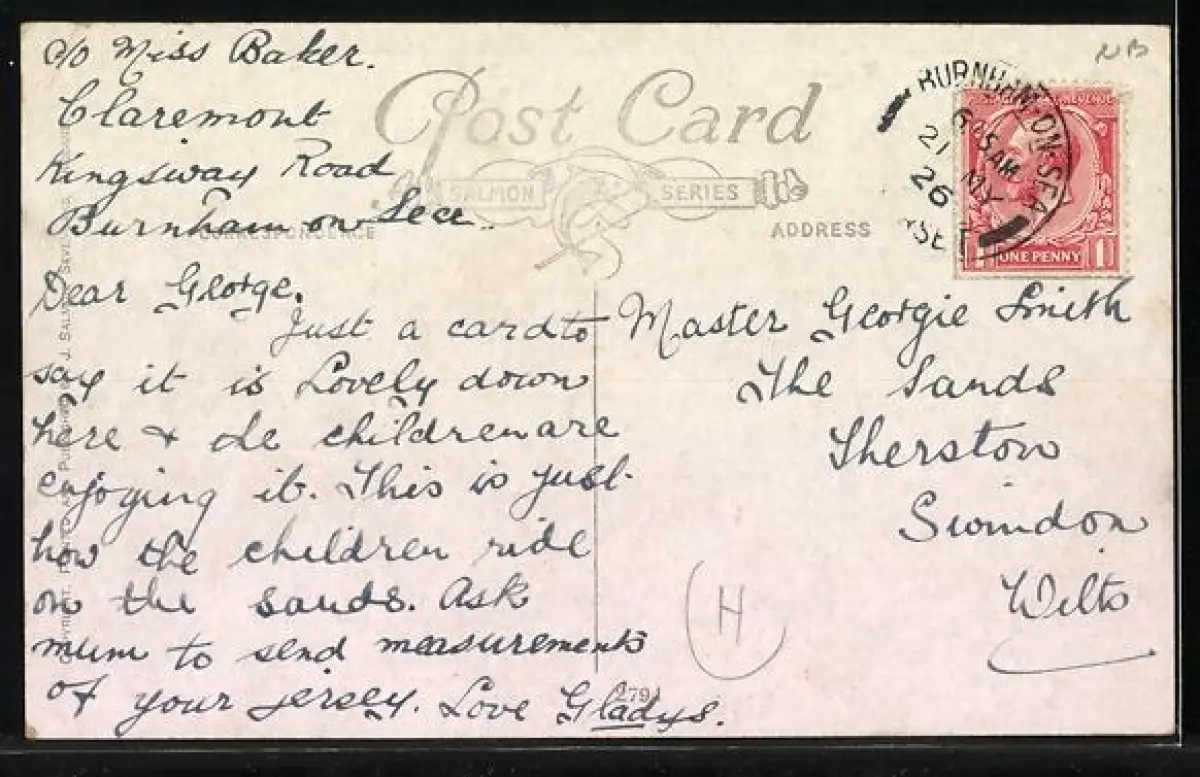 c/o Miss Baker.
Claremont
Kingsway Road
Burnham on Sea.
Post Card
SALMON SERIES
CORRESPONDENCE
ADDRESS
NB
BURNHAM-ON-SEA
AM
21 MY
26
POSTAGE REVENUE
1 ONE PENNY 1
Dear George.
Just a card to
say it is Lovely down
here & the children are
enjoying it. This is just
how the children ride
on the sands. Ask
mum to send measurements
of your jersey. Love Gladys.
Master Georgie Smith
The Sands
Sherston
Swindon
Wilts
H
279